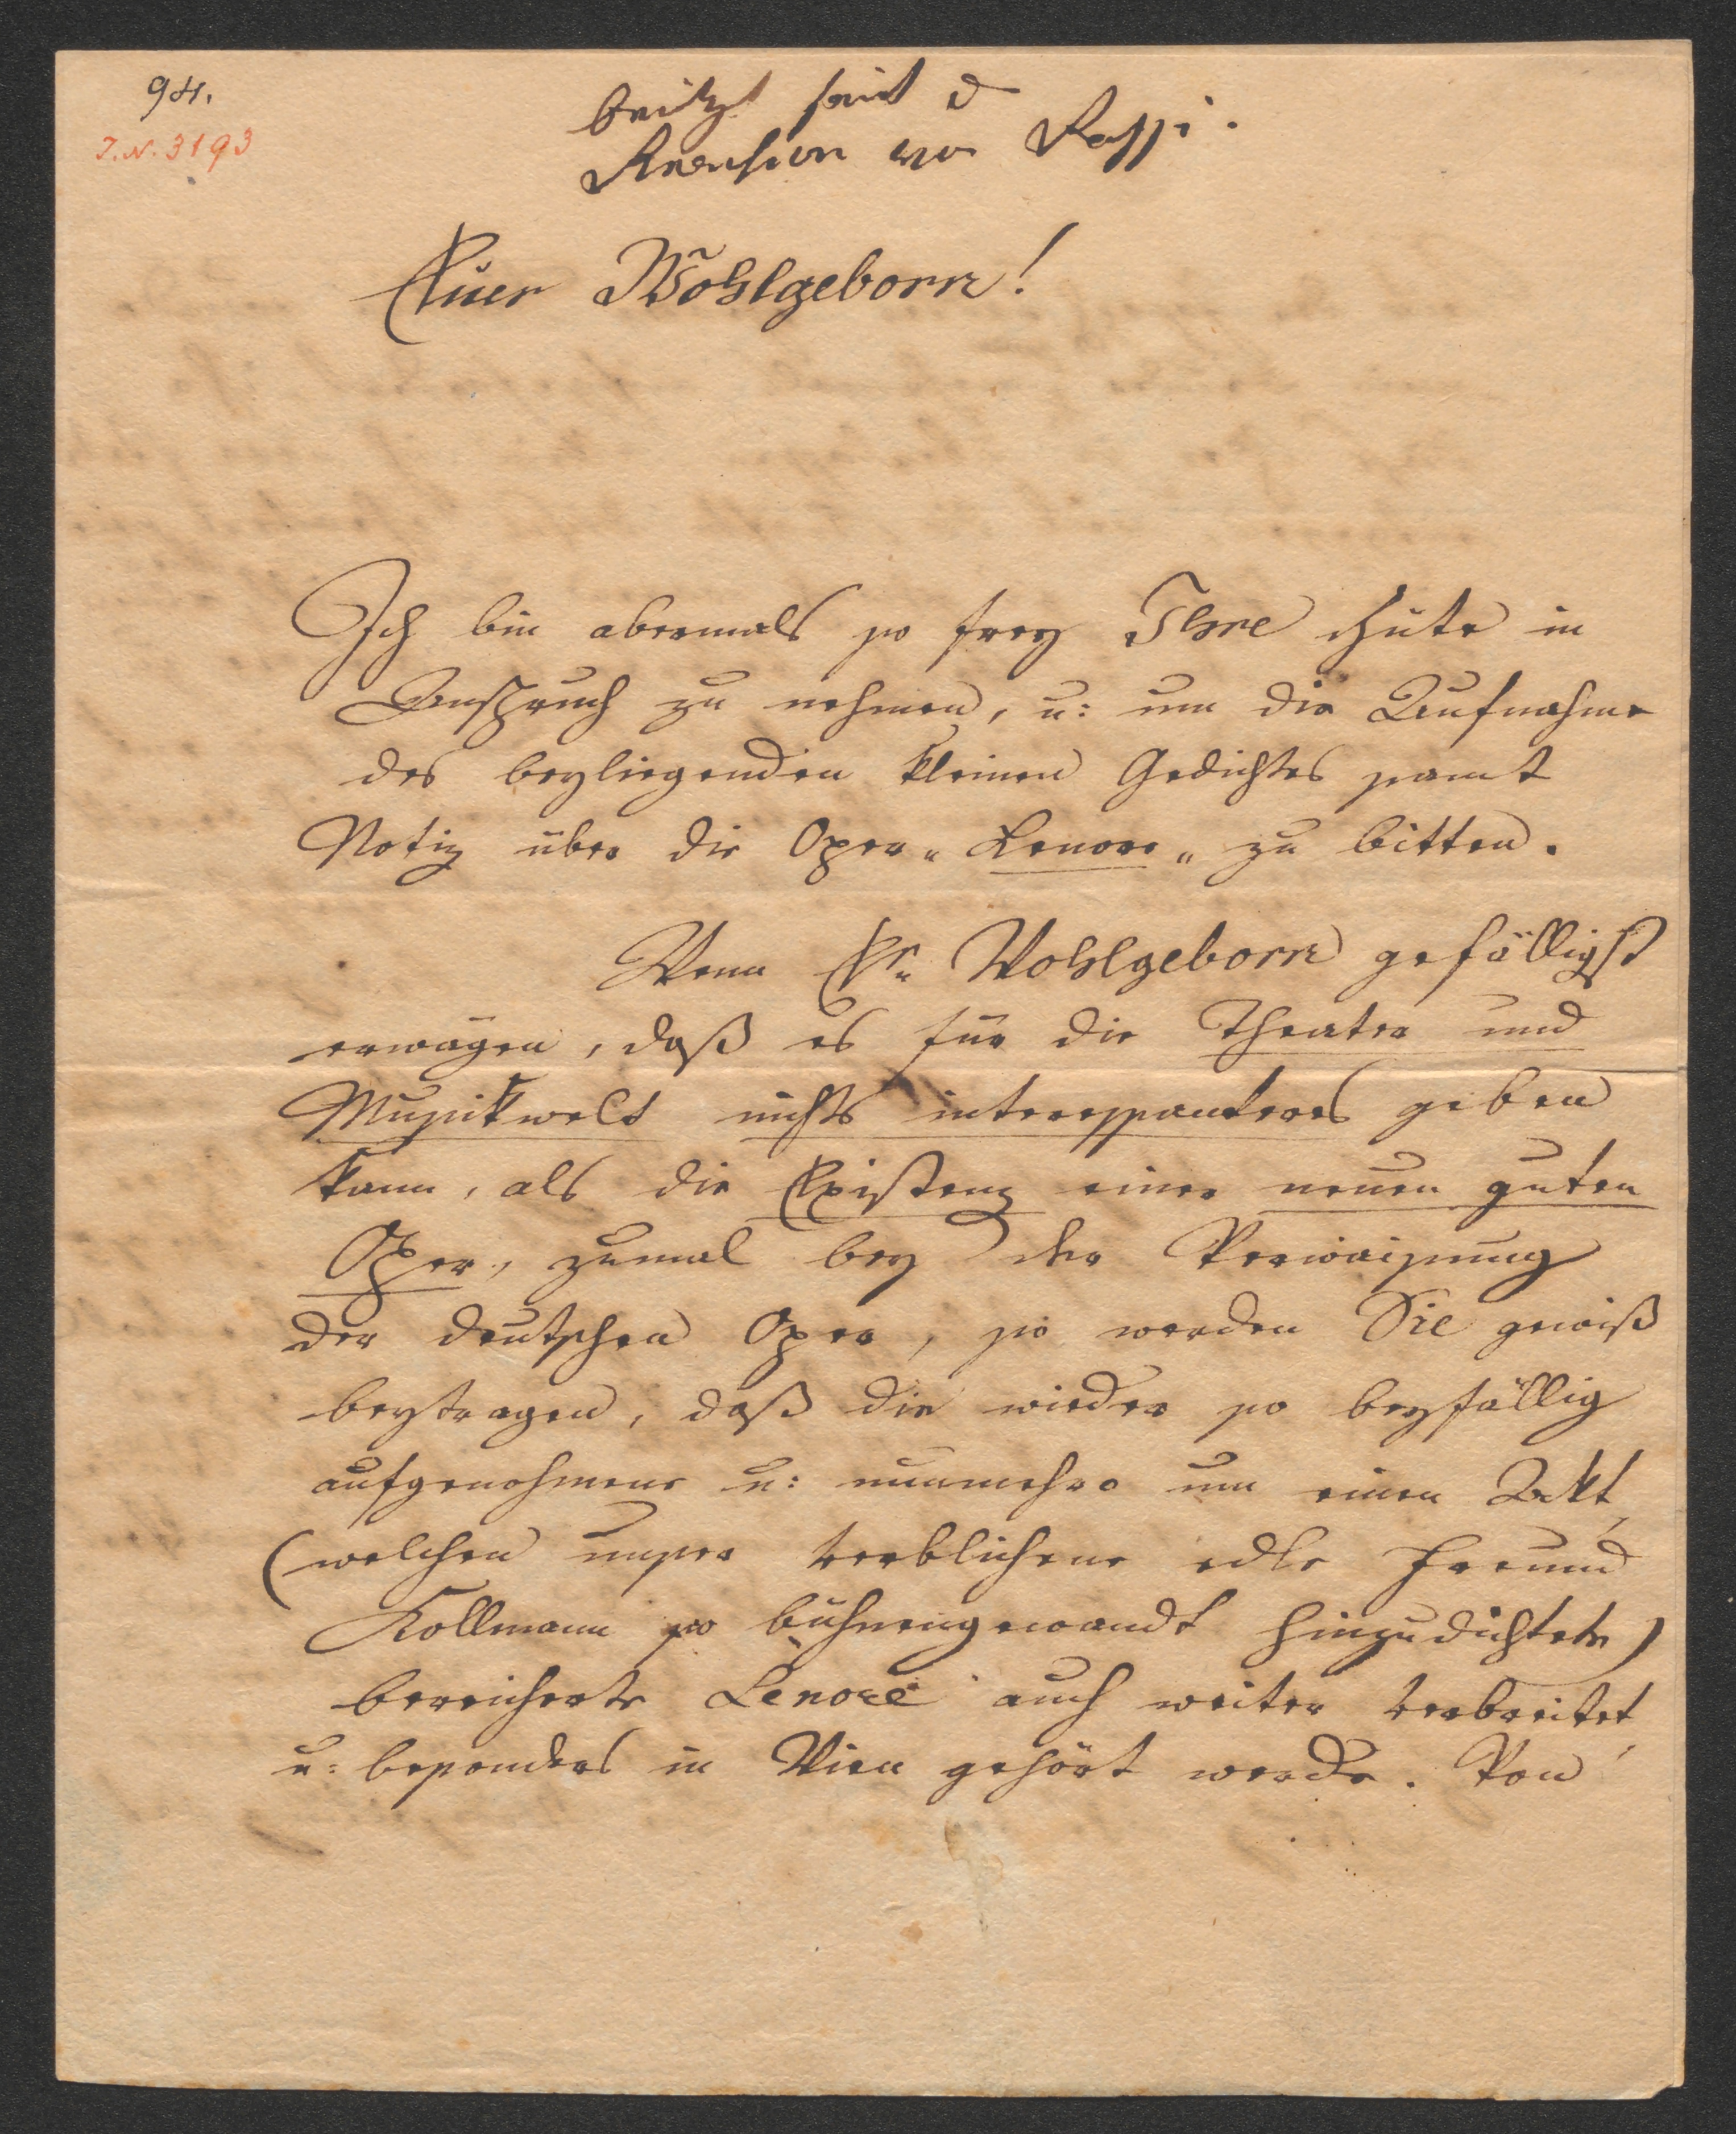 94.
I. N. 3193
Euer Wohlgeborn!
Ich bin abermals so frey Ihre Güte in
Anspruch zu nehmen, u: um die Aufnahme
des beyliegenden kleinen Gedichtes samt
Notiz über die Oper „Lenore„ zu bitten.
Wenn Er. Wohlgeborn gefälligst
erwägen, daß es für die Theater und
Musikwelt nichts interessanteres geben
kann, als die Existenz einer neuen guten
Oper, zumal bey der Verwaisung
der deutschen Oper, so werden Sie gewiß
beytragen, daß die wieder so beyfällig
aufgenohmene u: nunmehro um einen Akt
(welchen unser verblichene edle Freund
Kollmann so bühnengewandt hinzudichtete)
bereicherte Lenore auch weiter verbreitet
u: besonders in Wien gehört werde. Von